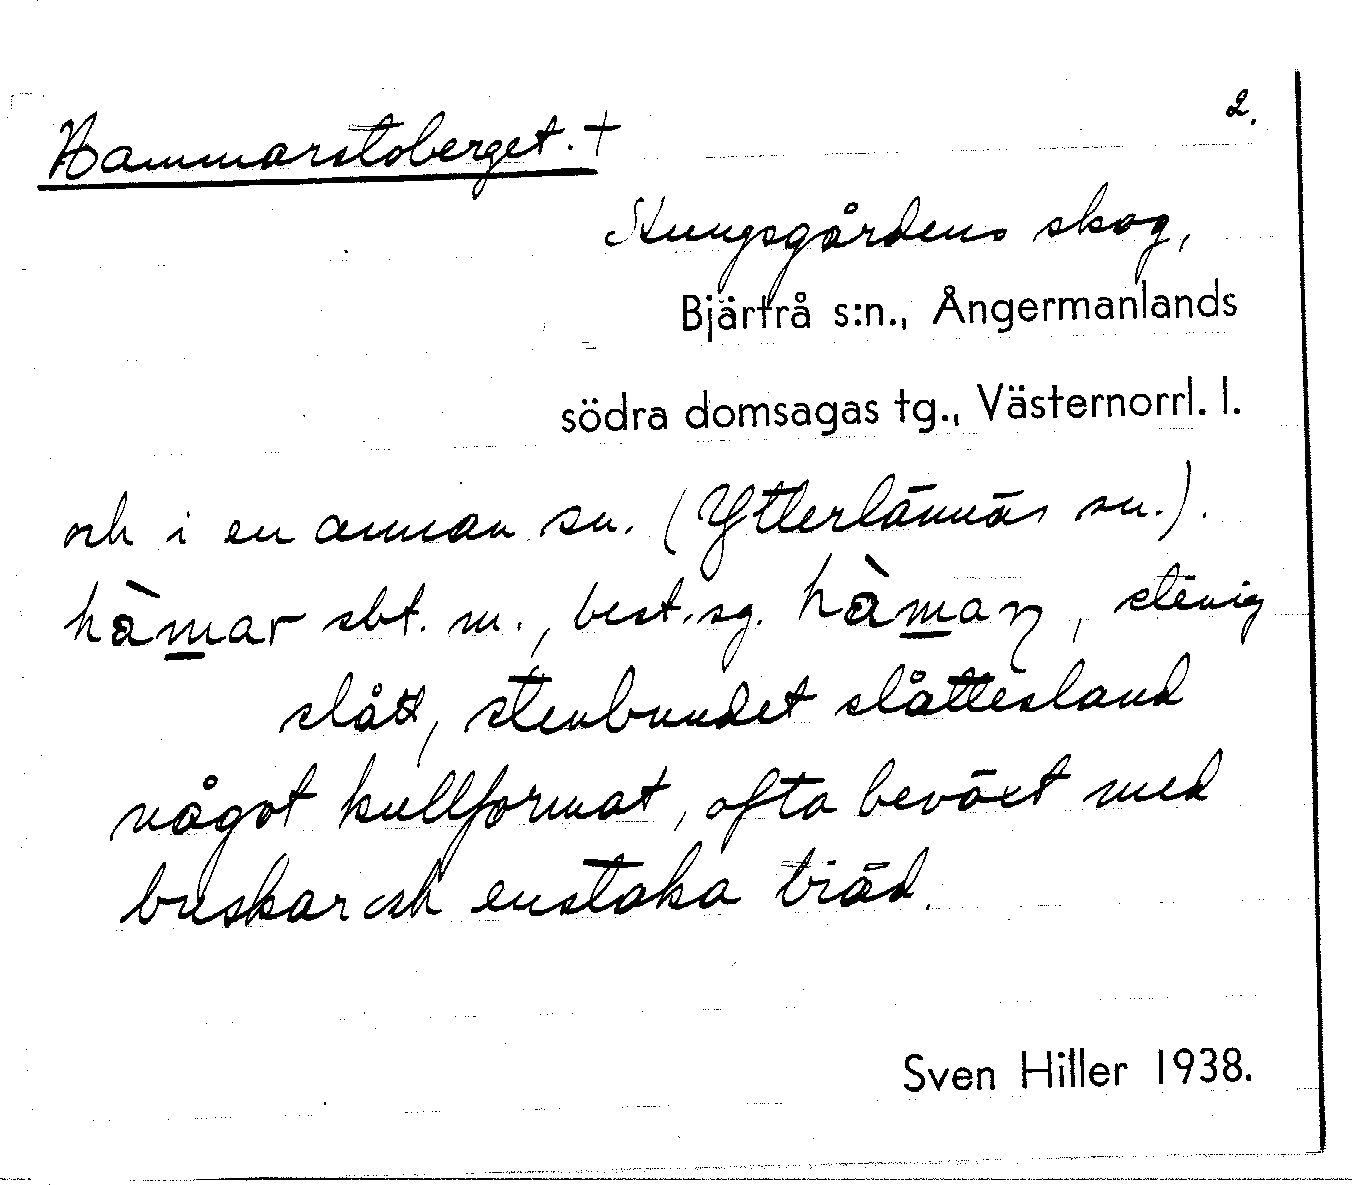 2.
Hammarstoberget. +
Kungsgårdens skog,
Bjärtrå s:n., Ångermanlands
södra domsagas tg., Västernorrl. l.
och i en annan sn. (Ytterlännäs sn.).
hàmar sbt. m., best. sg. hàmaɳ, stenig
slått, stenbundet slåttesland
något kullformat, ofta beväxt med
buskar och enstaka träd.
Sven Hiller 1938.